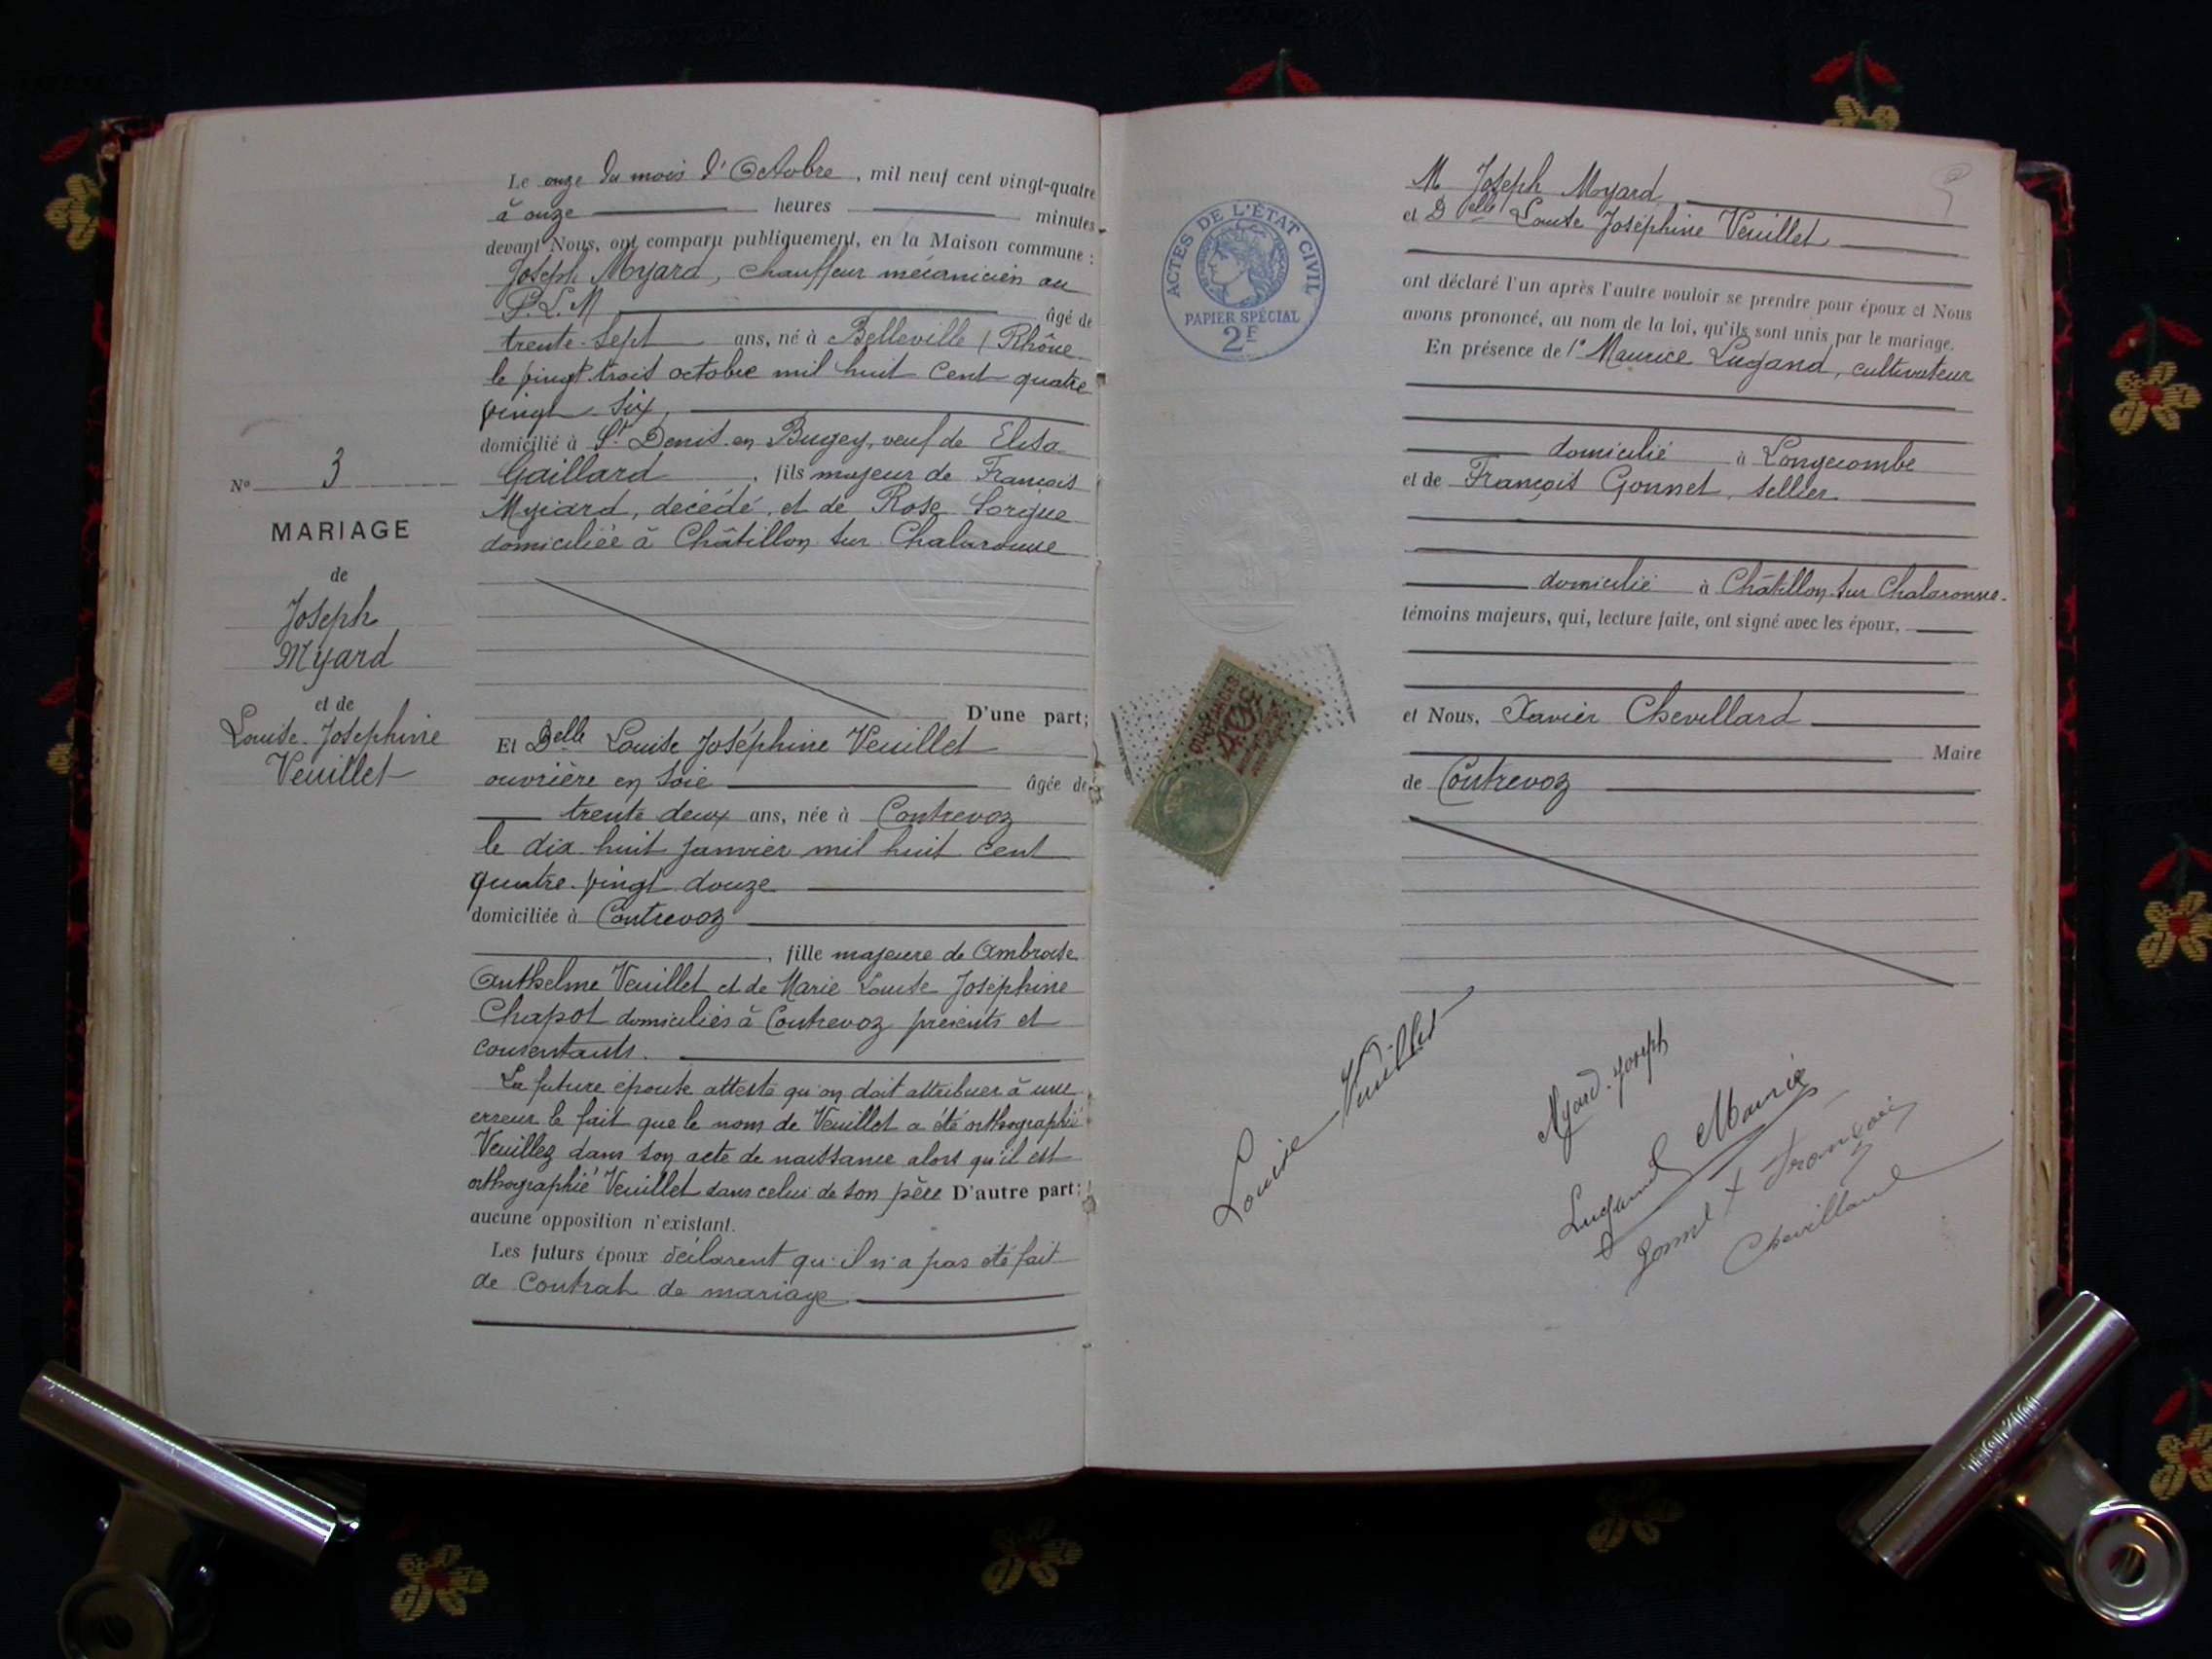 Le onze du mois d'Octobre, mil neuf cent vingt-quatre
à onze heures minutes
devant Nous, ont comparu publiquement, en la Maison commune :
Joseph Myard, chauffeur mécanicien au
P.L.M âgé de
trente-sept ans, né à Belleville (Rhône
le vingt trois octobre mil huit cent quatre
vingt six,
domicilié à St Denis en Bugey, veuf de Elisa
Gaillard, fils majeur de François
Myiard, décédé, et de Rose Sorique
domiciliée à Châtillon sur Chalaronne
D'une part;
Et Delle Louise Joséphine Veuillet
ouvrière en soie âgée de
trente deux ans, née à Contrevoz
le dix huit janvier mil huit cent
quatre-vingt douze
domiciliée à Contrevoz
, fille majeure de Ambroise
Anthelme Veuillet et de Marie Louise Joséphine
Chapot domiciliés à Contrevoz présents et
consentants.
La future épouse atteste qu'on doit attribuer à une
erreur le fait que le nom de Veuillet a été orthographié
Veuillez dans son acte de naissance alors qu'il est
orthographié Veuillet dans celui de son père D'autre part;
aucune opposition n'existant.
Les futurs époux déclarent qu'il n'a pas été fait
de contrat de mariage
No 3
MARIAGE
de
Joseph
Myard
et de
Louise-Josephine
Veuillet
ACTES DE L'ÉTAT CIVIL
PAPIER SPÉCIAL
2F
M Joseph Myard
et Delle Louise Joséphine Veuillet
ont déclaré l'un après l'autre vouloir se prendre pour époux et Nous
avons prononcé, au nom de la loi, qu'ils sont unis par le mariage.
En présence de 1° Maurice Lugand, cultivateur
domicilié à Longecombe
et de François Gonnet, sellier
domicilié à Châtillon sur Chalaronne.
témoins majeurs, qui, lecture faite, ont signé avec les époux,
et Nous, Xavier Chevillard
Maire
de Contrevoz
Louise Veuillet
Myard Joseph
Lugand Maurice
Gonnet François
Chevillard